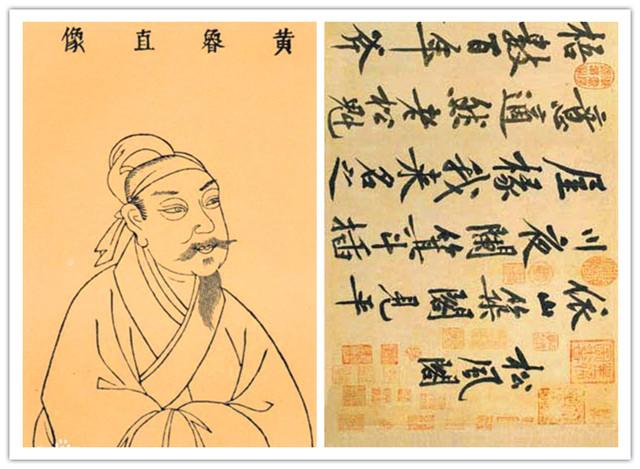 黄魯直像
松風閣
依山築閣見平
川夜闌箕斗插
屋椽我来名之
意適然老松魁
梧數百年斧